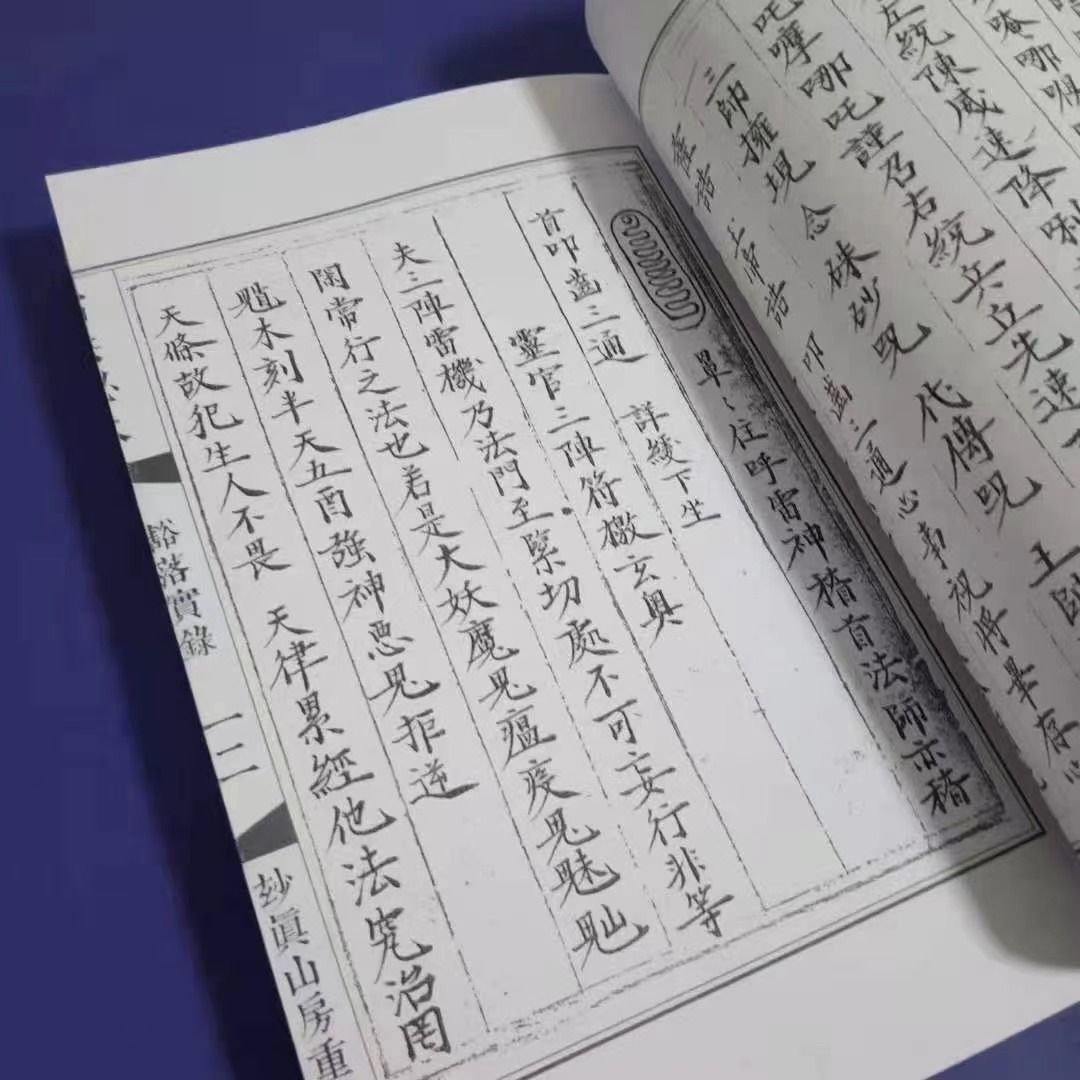 左統陳威速降
吒嗶哪吒謹召右統兵丘先速一
三帥擁現 念 硃砂咒 代傳咒 王帥
誥 上帝誥 叩齒三通心事祝將畢存
單〻住呼雷神稽首法師亦稽
首叩齒三通 詳綾下坐
靈官三陣符檄玄奧
夫三陣雷機乃法門至緊切處不可妄行非等
閑常行之法也若是大妖魔鬼瘟疾鬼魅
木刻半天五酉強神惡鬼拒逆
天條故犯生人不畏 天律累經他法究治罔
豁落實錄 一二 玅眞山房重